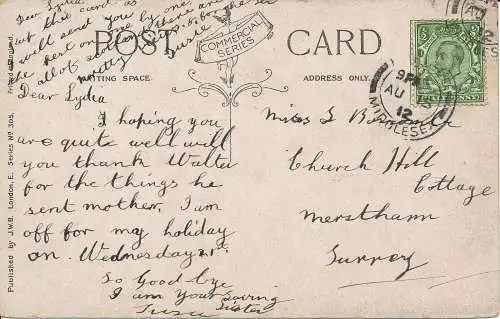 POST CARD
COMMERCIAL
SERIES
WRITING SPACE.
ADDRESS ONLY.
Dear Lydia
I hoping you
are quite well will
you thank Walter
for the things he
sent mother. I am
off for my holiday
on Wednesday 21st.
So Good bye
I am Your loving
Susie Sister
Miss L
Church Hill
Cottage
Merstham
Surrey
9PM
AU
12
MIDDLESEX
Published by J.W.B. London, E. Series No. 305.
Printed in England.
Dear Lydia
this card as
will send you
one by one.
Susie
pretty